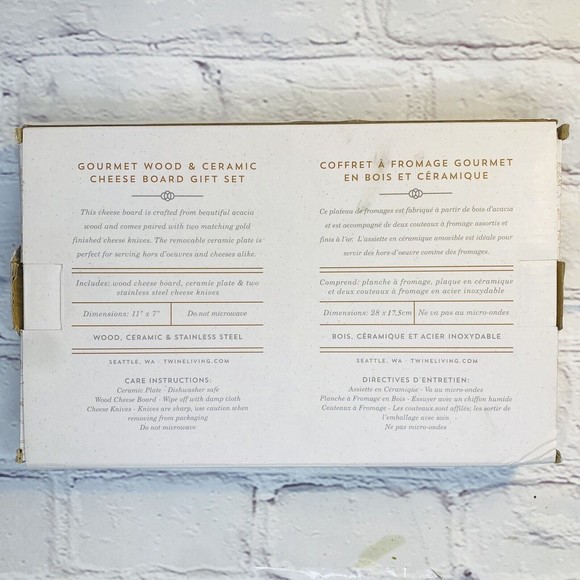 GOURMET WOOD & CERAMIC
CHEESE BOARD GIFT SET
This cheese board is crafted from beautiful acacia
wood and comes paired with two matching gold
finished cheese knives. The removable ceramic plate is
perfect for serving hors d'oeuvres and cheeses alike.
Includes: wood cheese board, ceramic plate & two
stainless steel cheese knives
Dimensions: 11" x 7"
Do not microwave
WOOD, CERAMIC & STAINLESS STEEL
SEATTLE, WA · TWINELIVING.COM
CARE INSTRUCTIONS:
Ceramic Plate - Dishwasher safe
Wood Cheese Board - Wipe off with damp cloth
Cheese Knives - Knives are sharp, use caution when
removing from packaging
Do not microwave
COFFRET À FROMAGE GOURMET
EN BOIS ET CÉRAMIQUE
Ce plateau de fromages est fabriqué à partir de bois d'acacia
et est accompagné de deux couteaux à fromage assortis et
finis à l'or. L'assiette en céramique amovible est idéale pour
servir des hors-d'oeuvre comme des fromages.
Comprend: planche à fromage, plaque en céramique
et deux couteaux à fromage en acier inoxydable
Dimensions: 28 x 17,5cm
Ne va pas au micro-ondes
BOIS, CÉRAMIQUE ET ACIER INOXYDABLE
SEATTLE, WA · TWINELIVING.COM
DIRECTIVES D'ENTRETIEN:
Assiette en Céramique - Va au micro-ondes
Planche à Fromage en Bois - Essuyer avec un chiffon humide
Couteaux à Fromage - Les couteaux sont affilés; les sortir de
l'emballage avec soin
Ne pas micro-ondes